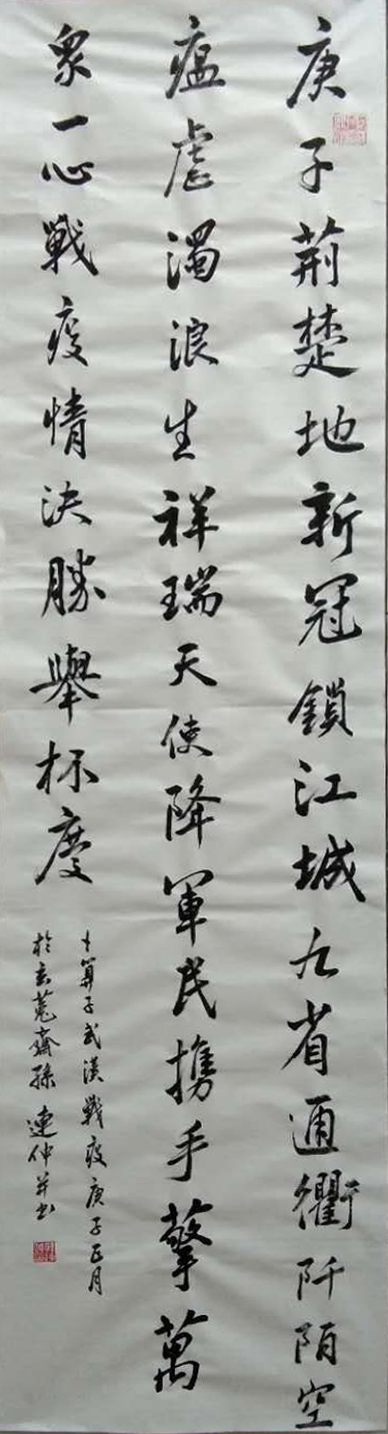 庚子荊楚地新冠鎖江城九省通衢阡陌空
瘟虐濁浪生祥瑞天使降軍民攜手擎萬
衆一心戰疫情決勝舉杯慶
卜算子武漢戰疫庚子正月
於玄菟齋孫連仲并书